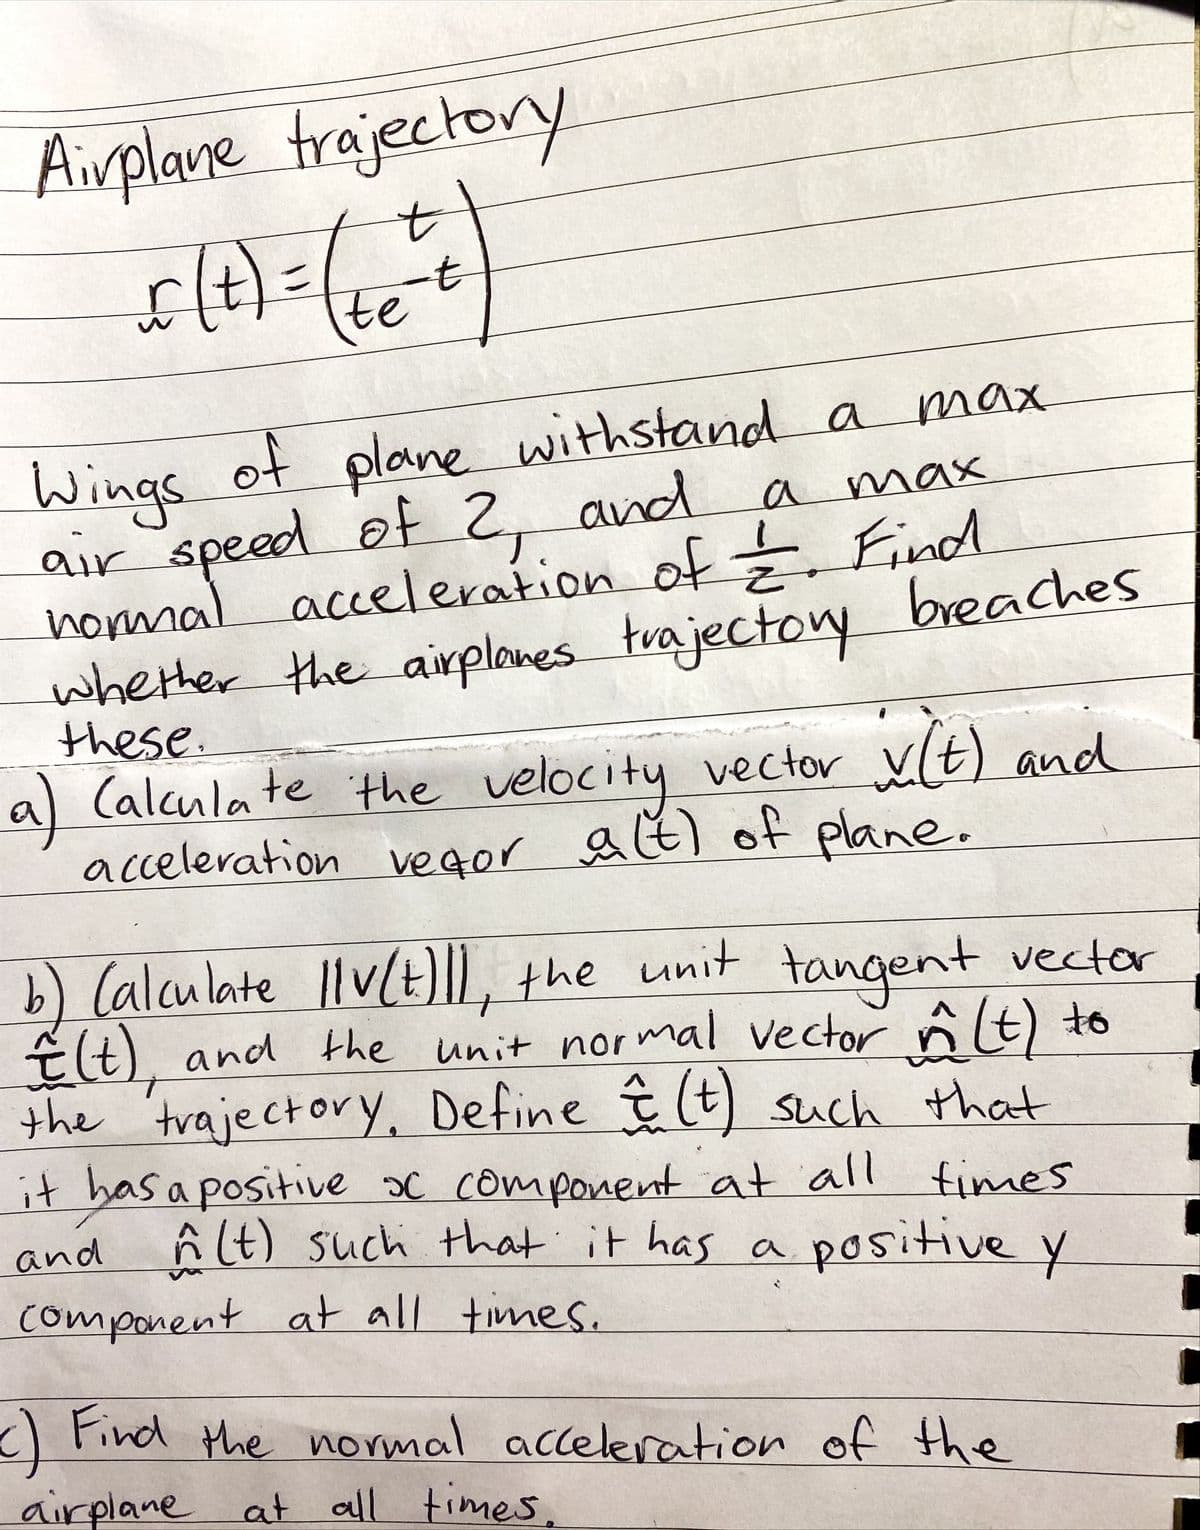 Airplane trajectory
r(t) = (t
te^-t)
Wings of plane withstand a max
air speed of 2, and a max
normal acceleration of 1/2. Find
whether the airplanes trajectory breaches
these.
a) Calculate the velocity vector v(t) and
acceleration vector a(t) of plane.
b) Calculate ||v(t)||, the unit tangent vector
t̂(t), and the unit normal vector n̂(t) to
the trajectory. Define t̂(t) such that
it has a positive x component at all times
and n̂(t) such that it has a positive y
component at all times.
c) Find the normal acceleration of the
airplane at all times.